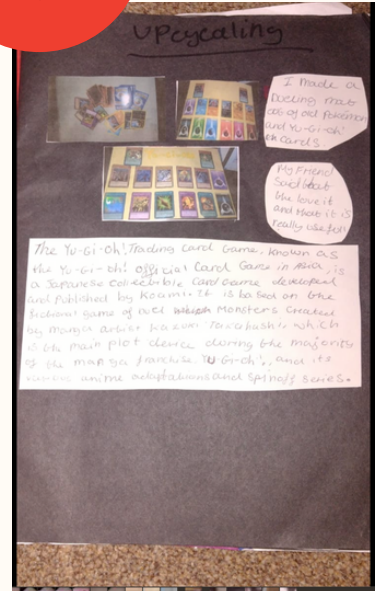 UPcycaling
I made a
Dueling mat
out of old Pokemon
and Yu-Gi-oh!
Cards.
My Friend
Said that
the love it
and that it is
really usefull
The Yu-Gi-Oh! Trading Card Game, known as
the Yu-Gi-oh! Official Card Game in Asia, is
a Japanese Collectible Card Game developed
and Published by Koami. It is based on the
fictional game of Monsters Created
by manga artist Kazuki Takahashi, which
is the main plot device during the majority
of the manga franchise Yu-Gi-oh!, and its
various anime adaptations and Spinoff series.